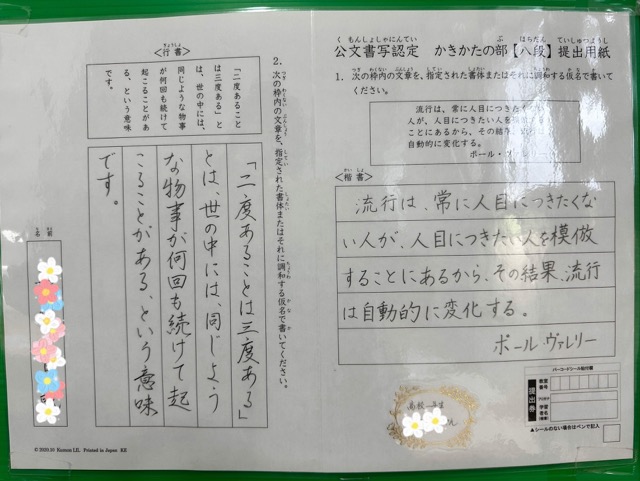 公文書写認定　かきかたの部【八段】提出用紙
1．次の枠内の文章を、指定された書体またはそれに調和する仮名で書いて
ください。
流行は、常に人目につきたくな
人が、人目につきたい人を
ことにあるから、その結
自動的に変化する。
ポール・
〈楷書〉
流行は、常に人目につきたくな
い人が、人目につきたい人を模倣
することにあるから、その結果、流行
は自動的に変化する。
ポール・ヴァレリー
高校一年生
バーコードシール貼付欄
提出券
▲シールのない場合はペンで記入
2．次の枠内の文章を、指定された書体またはそれに調和する仮名で書いてください。
〈行書〉
「二度あること
は三度ある」と
は、世の中には、
同じような物事
が何回も続けて
起こることがあ
る、という意味
です。
「二度あることは三度ある」
とは、世の中には、同じよう
な物事が何回も続けて起
こることがある、という意味
です。
名前
© 2020.10 Kumon LIL Printed in Japan KE